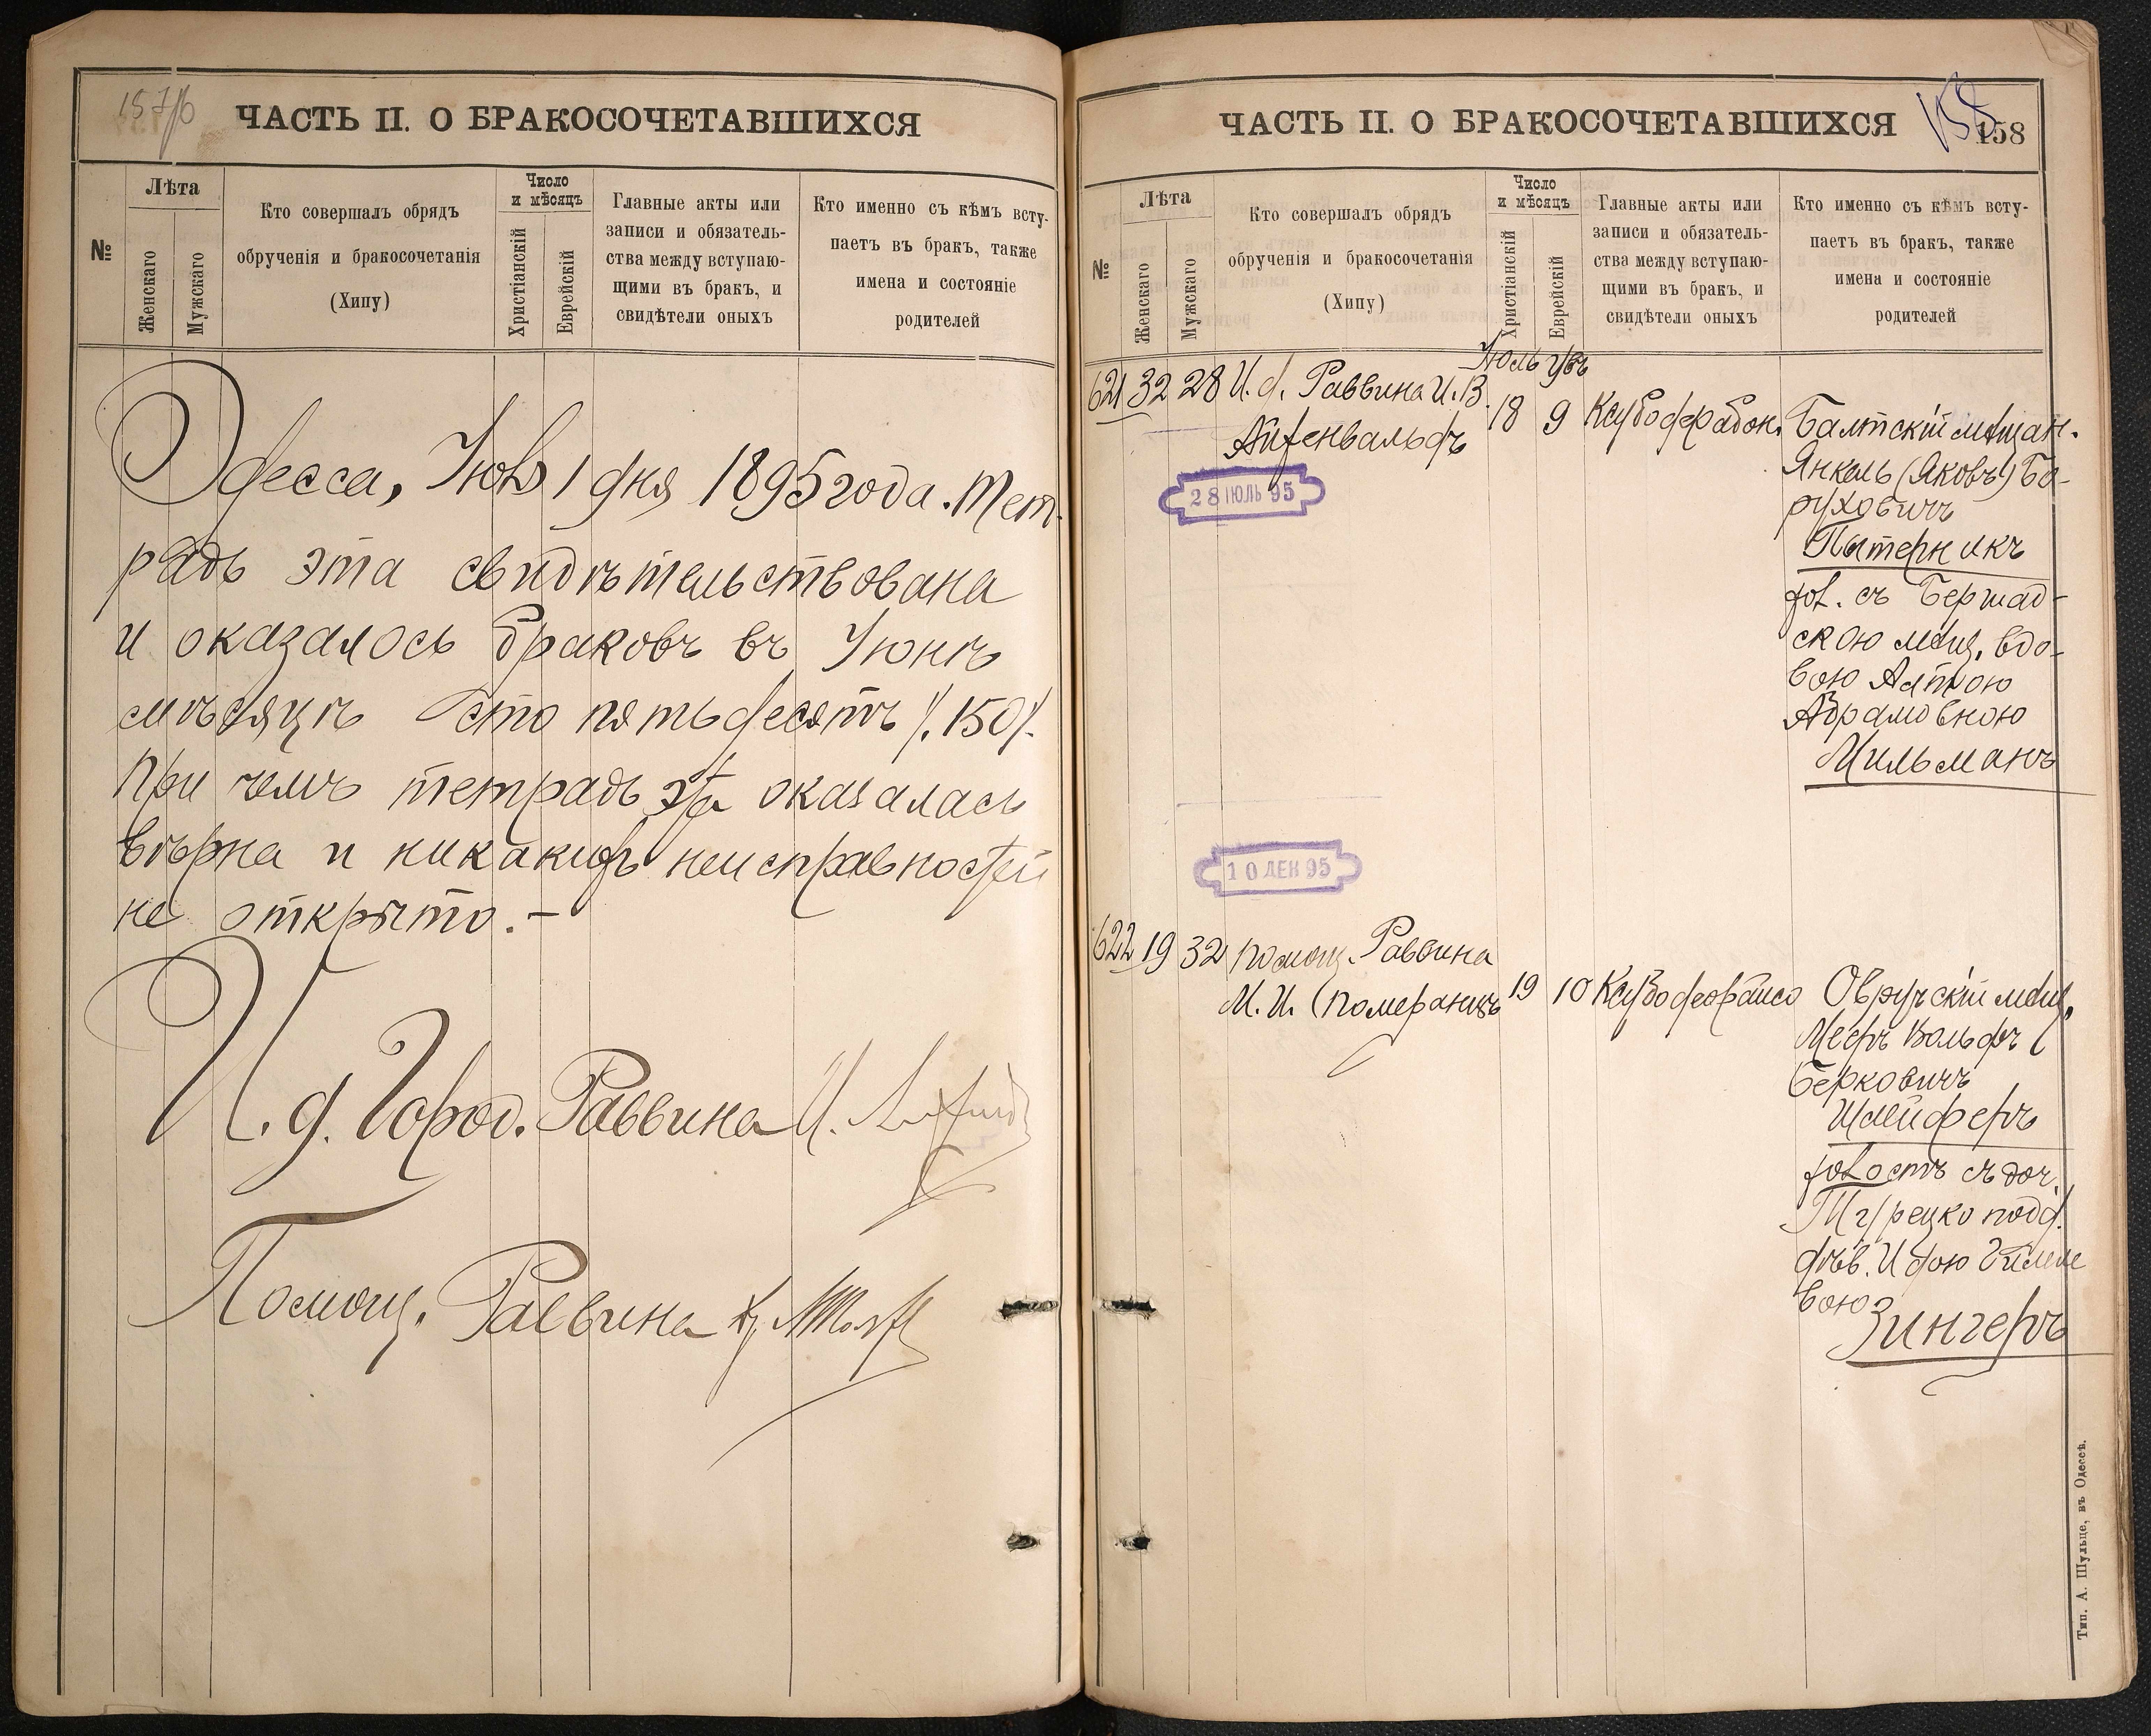 157/б
ЧАСТЬ II. О БРАКОСОЧЕТАВШИХСЯ
№
Лѣта
Женскаго
Мужскаго
Кто совершалъ обрядъ
обрученія и бракосочетанія
(Хипу)
Число
и мѣсяцъ
Христіанскій
Еврейскій
Главные акты или
записи и обязатель-
ства между вступаю-
щими въ бракъ, и
свидѣтели оныхъ
Кто именно съ кѣмъ всту-
паетъ въ бракъ, также
имена и состояніе
родителей
Одесса, 1 дня 1895 года. Тет-
радь эта свидѣтельствована
и оказалось браковъ въ Іюнѣ
мѣсяцѣ сто пятьдесятъ /.150/.
При чемъ тетрадь эта оказалась
вѣрна и никакихъ неисправностей
не открыто. —
И. д. Город. Раввина
Помощ. Раввина
ЧАСТЬ II. О БРАКОСОЧЕТАВШИХСЯ
158
158
№
Лѣта
Женскаго
Мужскаго
Кто совершалъ обрядъ
обрученія и бракосочетанія
(Хипу)
Число
и мѣсяцъ
Христіанскій
Еврейскій
Главные акты или
записи и обязатель-
ства между вступаю-
щими въ бракъ, и
свидѣтели оныхъ
Кто именно съ кѣмъ всту-
паетъ въ бракъ, также
имена и состояніе
родителей
Іюль
621 32 28 И. д. Раввина И. В.
Айхенвальдъ
18 9
28 ІЮЛЬ 95
Балтскій мѣщан.
Янкель (Яковъ) Бо-
руховичъ
Пытерникъ
хол. съ Бершад-
скою мѣщ. вдо-
вою Алтою
Абрамовною
Мильманъ
10 ДЕК 95
622 19 32 помощ. Раввина
М. И. Померанцъ
19 10
Овручскій мѣщ.
Мееръ Вольфъ
Берковичъ
Шлейферъ
холостъ съ доч.
Турецко подд.
дѣв.
вою
Зингеръ
Тип. А. Шульце, въ Одессѣ.